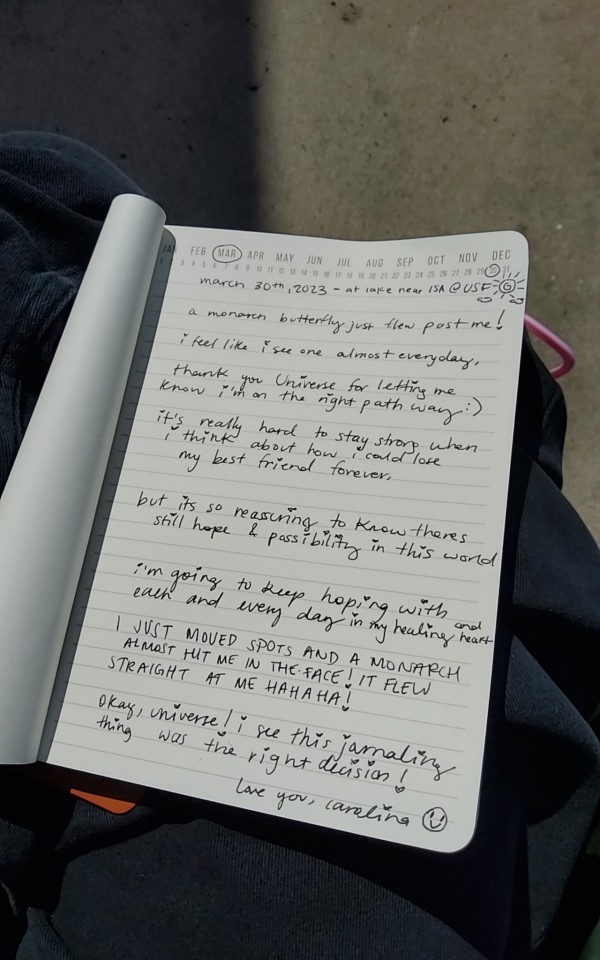 JAN FEB MAR APR MAY JUN JUL AUG SEP OCT NOV DEC
3 4 5 6 7 8 9 10 11 12 13 14 15 16 17 18 19 20 21 22 23 24 25 26 27 28 29 30 31
march 30th, 2023 - at lake near ISA @ USF
a monarch butterfly just flew past me!
i feel like i see one almost everyday.
thank you Universe for letting me
know i'm on the right path way :)
it's really hard to stay strong when
i think about how i could lose
my best friend forever.
but its so reasuring to know theres
still hope & possibility in this world
i'm going to keep hoping with
each and every day in my healing and heart
I JUST MOVED SPOTS AND A MONARCH
ALMOST HIT ME IN THE FACE! IT FLEW
STRAIGHT AT ME HAHAHA!
okay, universe! i see this jarnaling
thing was the right decision!
love you, carolina